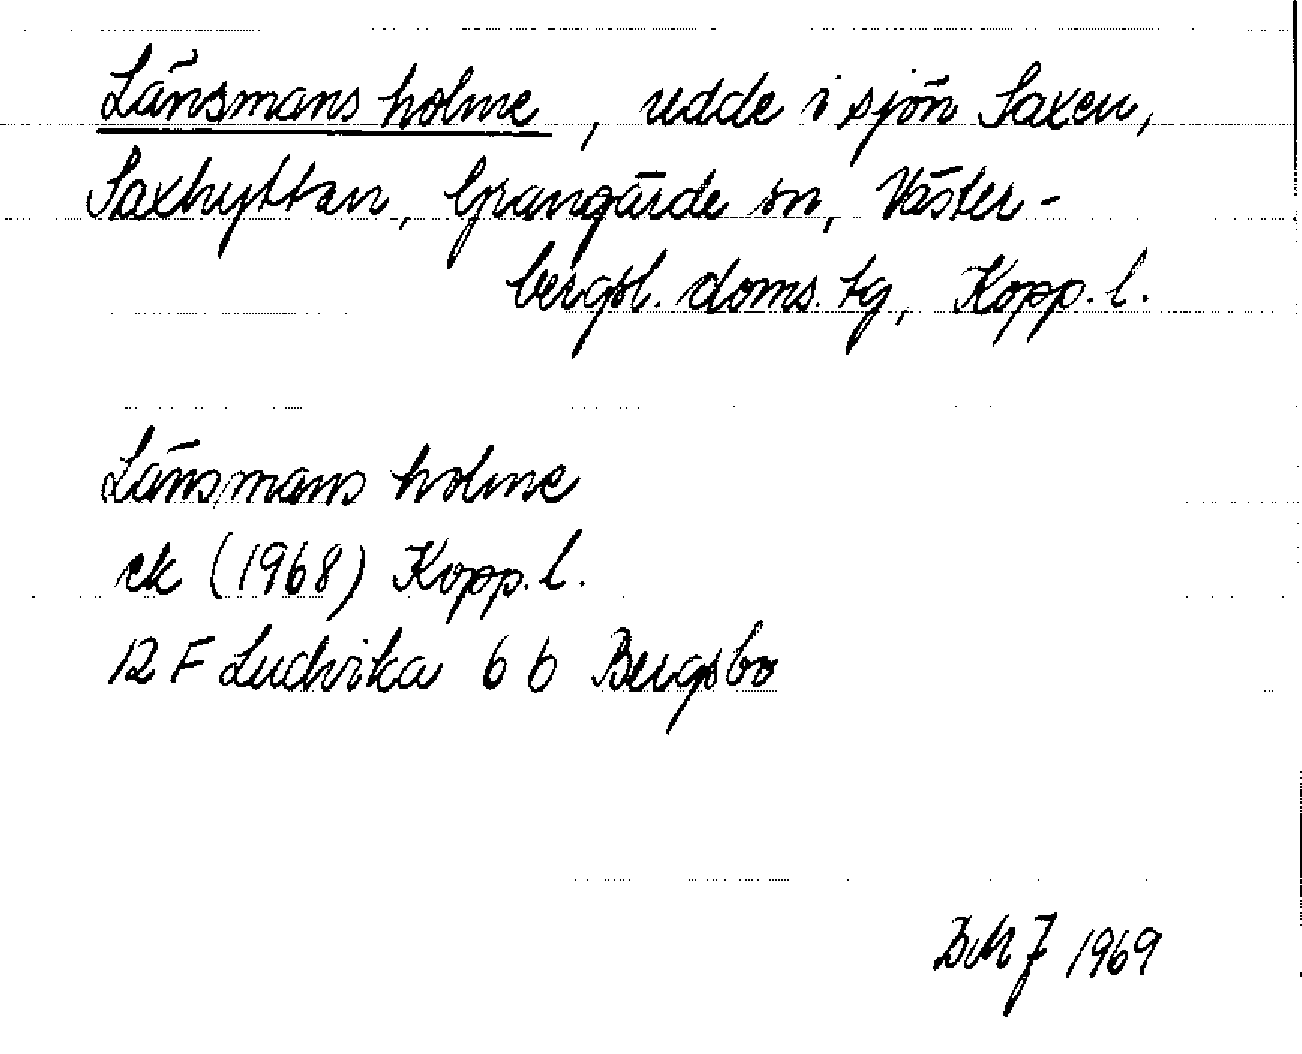 Länsmans holme, udde i sjön Saxen,
Saxhyttan, Grangärde sn, Väster-
bergsl. doms. tg, Kopp. l.
Länsmans holme
ek (1968) Kopp. l.
12 F Ludvika 6 b Bergsbo
BMJ 1969